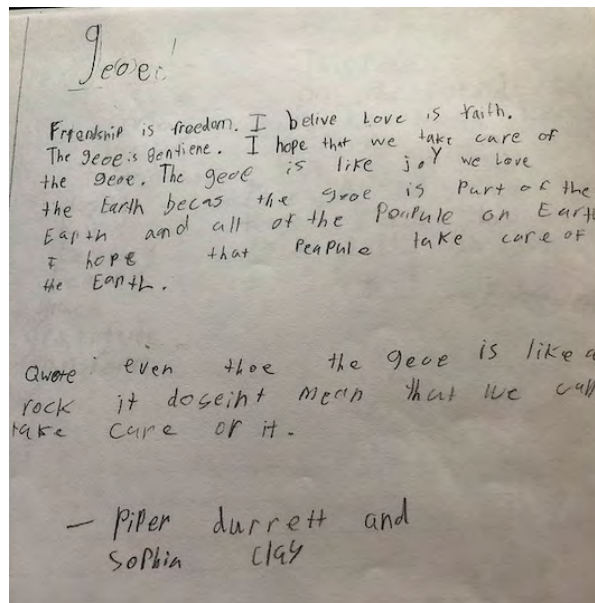 geoe!
Friendship is freedom. I belive Love is faith.
The geoe is gentiene. I hope that we take care of
the geoe. The geoe is like joy we Love
the Earth becas the geoe is Part of the
Earth and all of the Poepule on Earth
I hope that Peapule take care of
the Earth.
Qwote even thoe the geoe is like a
rock it doseint mean that we
take care of it.
— Piper durrett and
Sophia clay